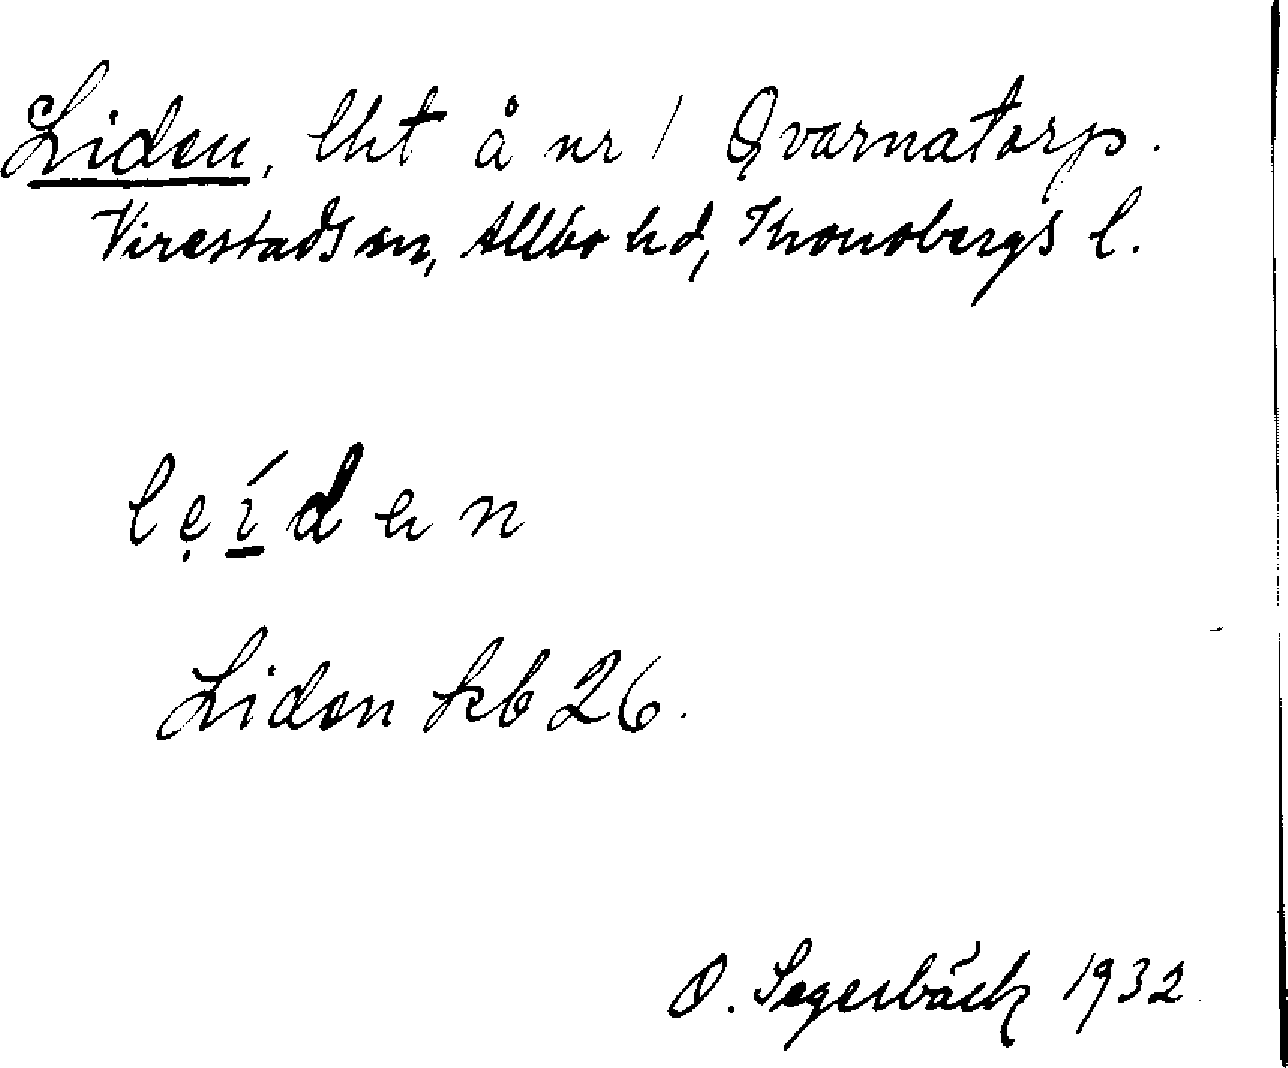 Liden, lht å nr 1 Qvarnatorp.
Virestads sn, Allbo hd, Kronobergs l.
lẹí̱den
Liden kb 26.
O. Segerbäck 1932